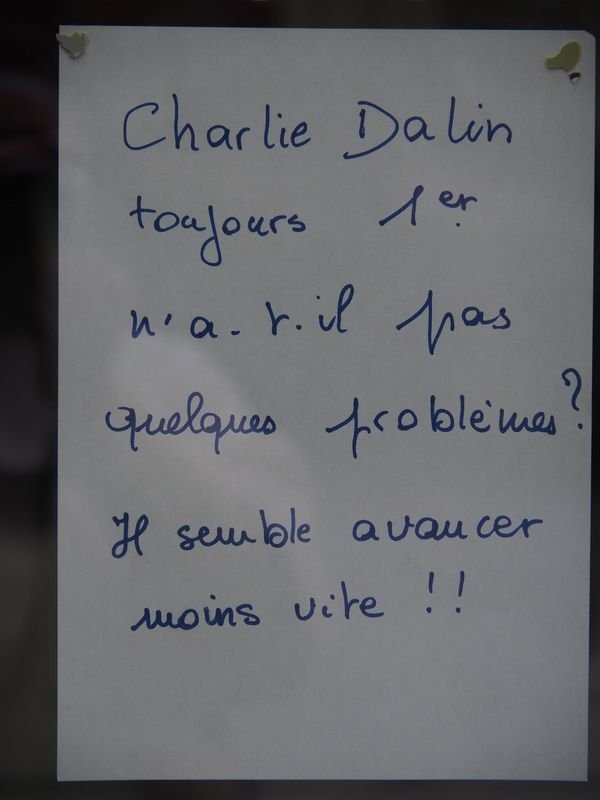 Charlie Dalin
toujours 1er
n'a-t-il pas
quelques problèmes?
Il semble avancer
moins vite !!